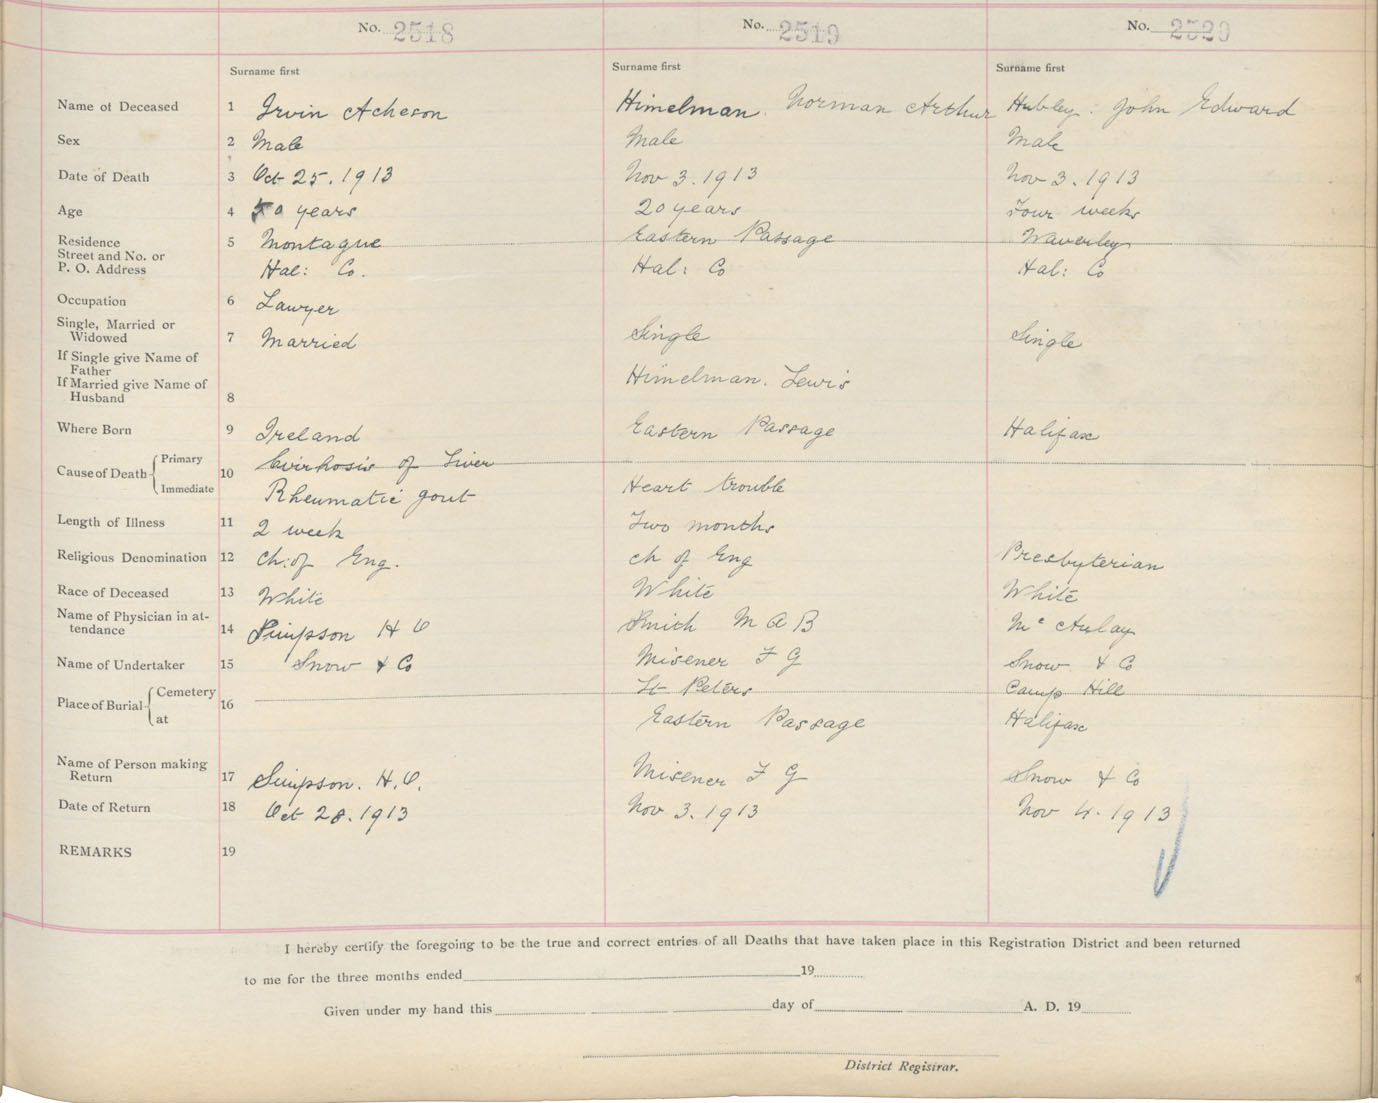 No. 2518 No. 2519 No. 2520
Surname first Surname first Surname first
Name of Deceased 1 Irvin Acheson Himelman. Norman Arthur Hubley. John Edward
Sex 2 Male Male Male
Date of Death 3 Oct 25. 1913 Nov 3. 1913 Nov 3. 1913
Age 4 50 years 20 years Four weeks
Residence 5 Montague Eastern Passage Waverley
Street and No. or
P. O. Address Hal: Co. Hal: Co Hal: Co
Occupation 6 Lawyer
Single, Married or
Widowed 7 Married Single Single
If Single give Name of
Father
If Married give Name of Himelman. Lewis
Husband 8
Where Born 9 Ireland Eastern Passage Halifax
Cause of Death Primary 10 Cirrhosis of Liver
Immediate Rheumatic gout Heart trouble
Length of Illness 11 2 week Two months
Religious Denomination 12 Ch: of Eng. Ch of Eng Presbyterian
Race of Deceased 13 White White White
Name of Physician in at-
tendance 14 Simpson H O Smith M A B Mc Aulay
Name of Undertaker 15 Snow & Co Misener F G Snow & Co
Place of Burial Cemetery 16 St Peters Camp Hill
at Eastern Passage Halifax
Name of Person making
Return 17 Simpson. H. O. Misener F G Snow & Co
Date of Return 18 Oct 28. 1913 Nov 3. 1913 Nov 4. 1913
REMARKS 19
I hereby certify the foregoing to be the true and correct entries of all Deaths that have taken place in this Registration District and been returned
to me for the three months ended 19
Given under my hand this day of A. D. 19
District Registrar.